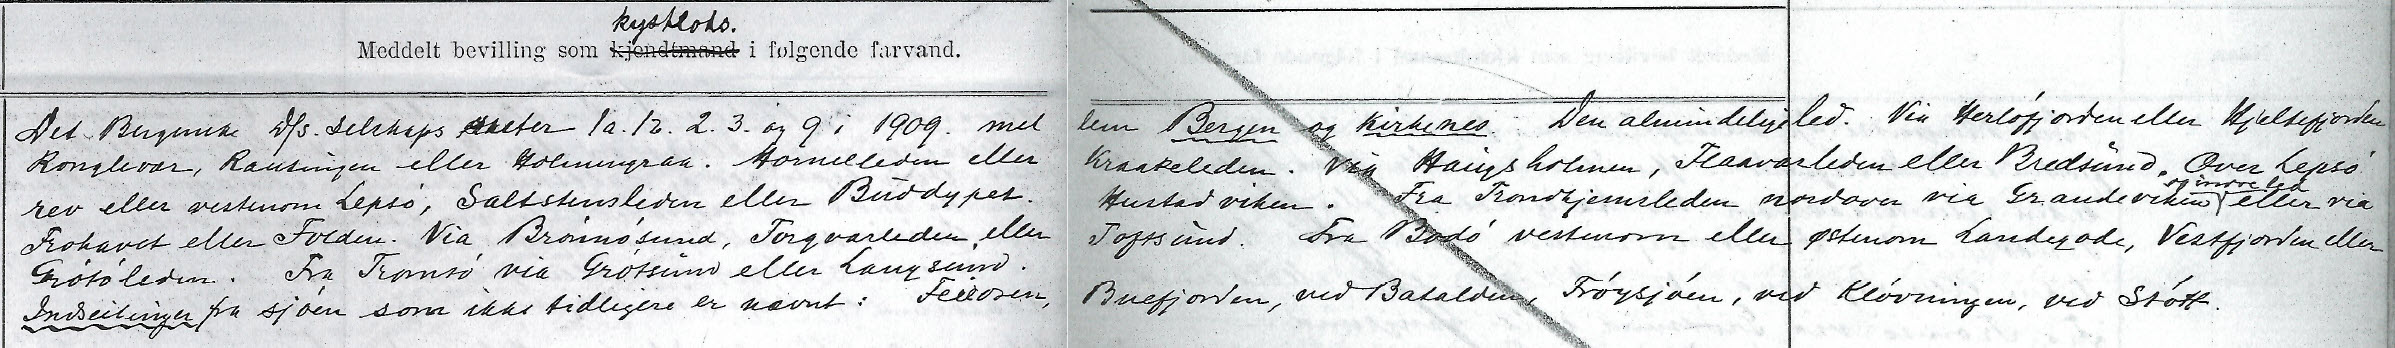 kystlods.
Meddelt bevilling som kjendtmand i følgende farvand.
Det Bergenske D/s. Selskaps ruter 1a. 1b. 2. 3. og 9 i 1909. mellem Bergen og Kirkenes. Den almindelige led. Via Herløfjorden eller Hjeltefjorden
Ronglevær, Ransingen eller Holmengraa. Hornelleden eller Kraakeleden. Via Haugsholmen, Flaavarleden eller Bredsund. Over Lepsø
rev eller vestenom Lepsø, Saltstensleden eller Buddypet. Hustadviken. Fra Trondhjemsleden nordover via Grandeviken og indre led eller via
Frohavet eller Folden. Via Brönnösund, Torgvarleden, eller Toftsund. Fra Bodö vestenom eller østenom Landegode, Vestfjorden eller
Grötöleden. Fra Tromsö via Grötsund eller Langsund.
Indseilinger fra sjöen som ikke tidligere er nævnt: Feieosen, Buefjorden, ved Batalden, Fröysjöen, ved Klövningen, ved Stött.